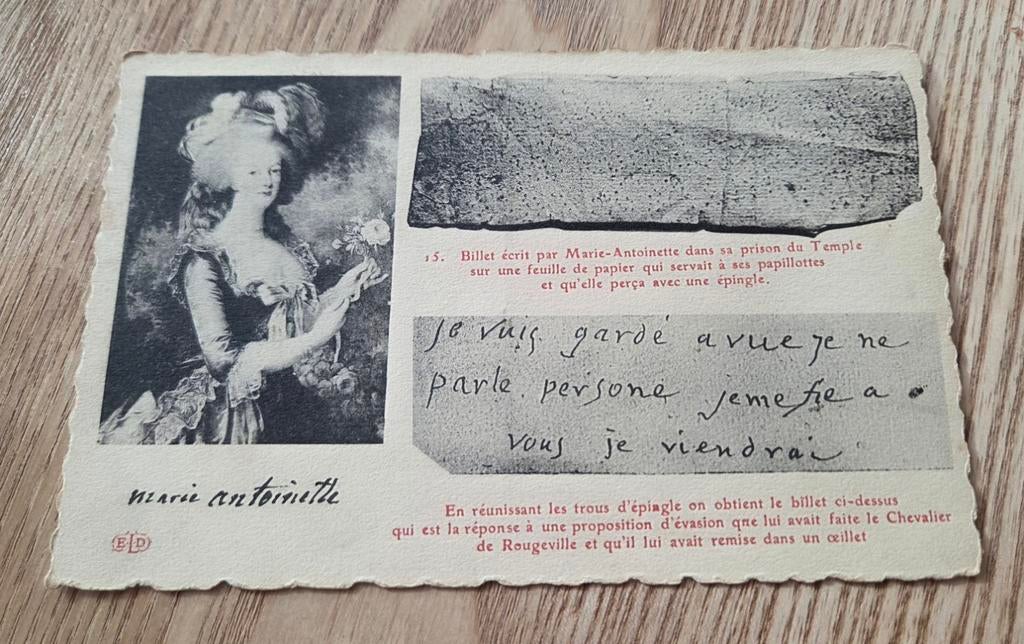 15. Billet écrit par Marie-Antoinette dans sa prison du Temple
sur une feuille de papier qui servait à ses papillottes
et qu'elle perça avec une épingle.
je vuis gardé a vue je ne
parle persone jeme fie a
vous je viendrai
marie antoinette
En réunissant les trous d'épingle on obtient le billet ci-dessus
qui est la réponse à une proposition d'évasion qne lui avait faite le Chevalier
de Rougeville et qu'il lui avait remise dans un œillet
ELD